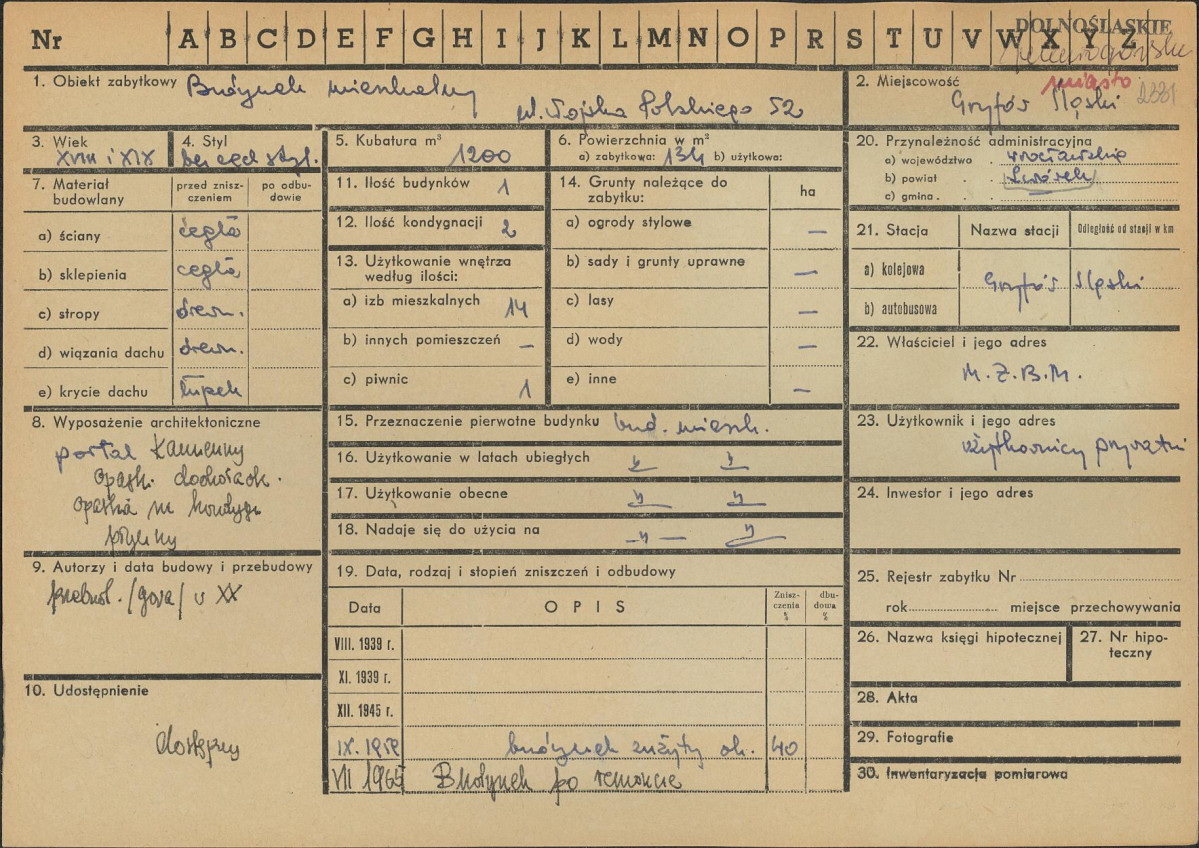 DOLNOŚLĄSKIE
Nr A B C D E F G H I J K L M N O P R S T U V W X Y Z
1. Obiekt zabytkowy Budynek mieszkalny
ul. Wojska Polskiego 52
2. Miejscowość miasto
Gryfów Śląski 2331
3. Wiek
XVIII i XIX
4. Styl
bez cech styl.
5. Kubatura m³
1200
6. Powierzchnia w m²
a) zabytkowa: 134 b) użytkowa:
20. Przynależność administracyjna
a) województwo wrocławskie
b) powiat Lwówek
c) gmina
7. Materiał budowlany
przed zniszczeniem
po odbudowie
a) ściany cegła
b) sklepienia cegła
c) stropy drewn.
d) wiązania dachu drewn.
e) krycie dachu łupek
11. Ilość budynków 1
12. Ilość kondygnacji 2
13. Użytkowanie wnętrza
według ilości:
a) izb mieszkalnych 14
b) innych pomieszczeń –
c) piwnic 1
14. Grunty należące do
zabytku:
ha
a) ogrody stylowe –
b) sady i grunty uprawne –
c) lasy –
d) wody –
e) inne –
21. Stacja
Nazwa stacji
Odległość od stacji w km
a) kolejowa
Gryfów Śląski
b) autobusowa
22. Właściciel i jego adres
M.Z.B.M.
8. Wyposażenie architektoniczne
portal kamienny
opask. dookoła ok.
opaska m kondyg.
9. Autorzy i data budowy i przebudowy
przebud. /góra/ w XX
10. Udostępnienie
dostępny
15. Przeznaczenie pierwotne budynku bud. mieszk.
16. Użytkowanie w latach ubiegłych " "
17. Użytkowanie obecne " "
18. Nadaje się do użycia na " "
19. Data, rodzaj i stopień zniszczeń i odbudowy
Data
OPIS
Zniszczenia %
dbudowa %
VIII. 1939 r.
XI. 1939 r.
XII. 1945 r.
IX. 1959 budynek zużyty ok. 40
VII 1965 Budynek po remoncie
23. Użytkownik i jego adres
użytkownicy prywatni
24. Inwestor i jego adres
25. Rejestr zabytku Nr
rok miejsce przechowywania
26. Nazwa księgi hipotecznej
27. Nr hipoteczny
28. Akta
29. Fotografie
30. Inwentaryzacja pomiarowa